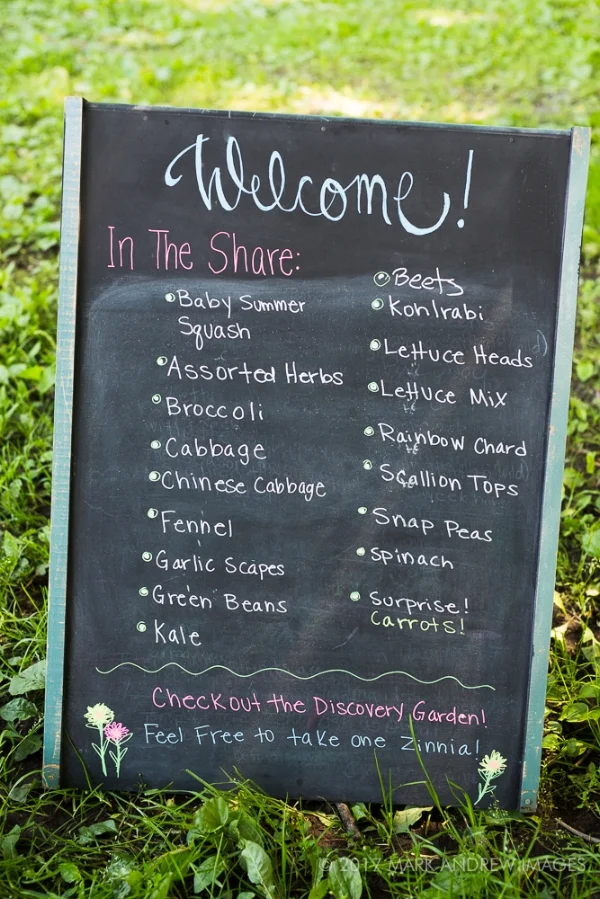 Welcome!
In The Share:
Baby Summer
Squash
Assorted Herbs
Broccoli
Cabbage
Chinese Cabbage
Fennel
Garlic Scapes
Green Beans
Kale
Beets
Kohlrabi
Lettuce Heads
Lettuce Mix
Rainbow Chard
Scallion Tops
Snap Peas
Spinach
Surprise!
Carrots!
Checkout the Discovery Garden!
Feel Free to take one Zinnia!
© 2017 MARK ANDREW IMAGES